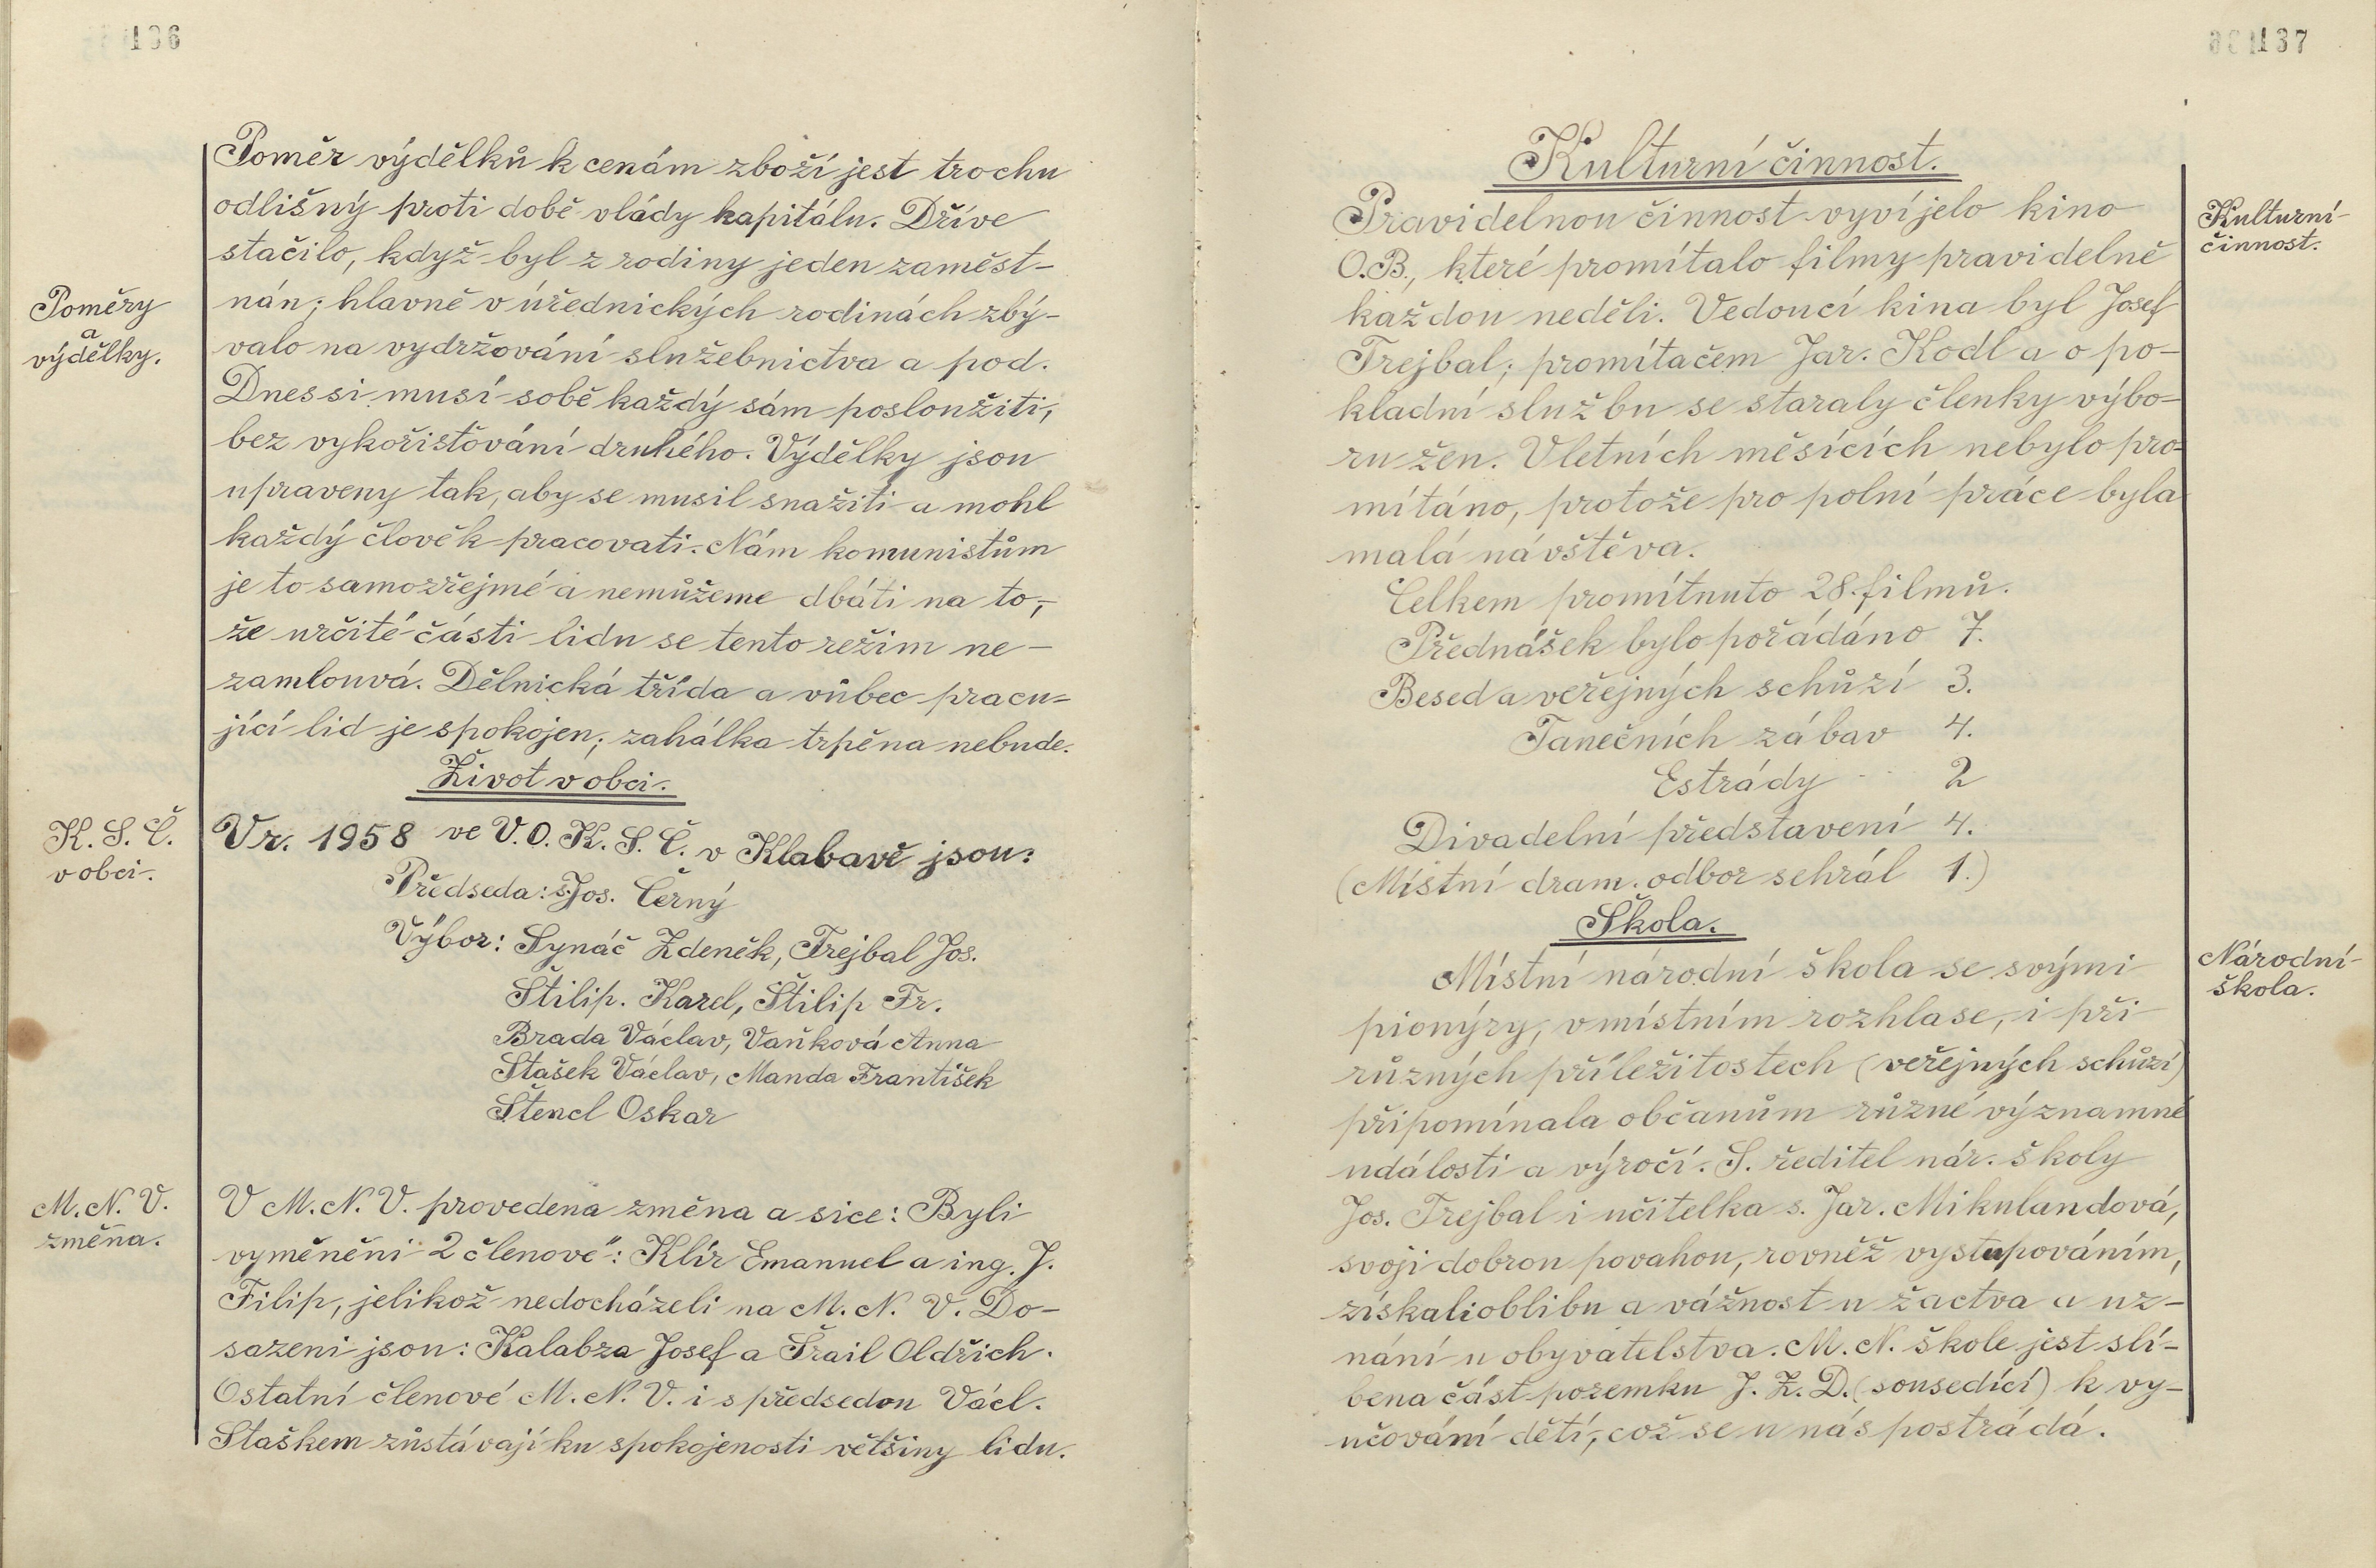 136
Poměr výdělků k cenám zboží jest trochu
odlišný proti době vlády kapitálu. Dříve
stačilo, když byl z rodiny jeden zaměst-
nán; hlavně v úřednických rodinách zbý-
valo na vydržování služebnictva a pod.
Dnes si musí sobě každý sám posloužiti,
bez vykořisťování druhého. Výdělky jsou
upraveny tak, aby se musil snažiti a mohl
každý člověk pracovati. Nám komunistům
je to samozřejmé a nemůžeme dbáti na to,
že určité části lidu se tento režim ne-
zamlouvá. Dělnická třída a vůbec pracu-
jící lid je spokojen; zahálka trpěna nebude.
Poměry
a
výdělky.
Život v obci.
K. S. Č.
v obci.
V r. 1958 ve V.O.K.S.Č. v Klabavě jsou:
Předseda: s. Jos. Černý
Výbor: Synáč Zdeněk, Trejbal Jos.
Štilip. Karel, Štilip Fr.
Brada Václav, Vaňková Anna
Stašek Václav, Manda František
Štencl Oskar
M. N. V.
změna.
V M. N. V. provedena změna a sice: Byli
vyměněni 2 členové: Klír Emanuel a ing. J.
Filip, jelikož nedocházeli na M. N. V. Do-
sazeni jsou: Kalabza Josef a Šrail Oldřich.
Ostatní členové M. N. V. i s předsedou Václ.
Staškem zůstávají ku spokojenosti většiny lidu.
137
Kulturní činnost.
Kulturní
činnost.
Pravidelnou činnost vyvíjelo kino
O.B., které promítalo filmy pravidelně
každou neděli. Vedoucí kina byl Josef
Trejbal; promítačem Jar. Kodl a o po-
kladní službu se staraly členky výbo-
ru žen. V letních měsících nebylo pro-
mítáno, protože pro polní práce byla
malá návštěva.
Celkem promítnuto 28. filmů.
Přednášek bylo pořádáno 7.
Besed a veřejných schůzí 3.
Tanečních zábav 4.
Estrády 2
Divadelní představení 4.
(Místní dram. odbor sehrál 1.)
Škola.
Národní
škola.
Místní národní škola se svými
pionýry, v místním rozhlase, i při
různých příležitostech (veřejných schůzí)
připomínala občanům různé významné
události a výročí. S. ředitel nár. školy
Jos. Trejbal i učitelka s. Jar. Mikulandová,
svojí dobrou povahou, rovněž vystupováním,
získali oblibu a vážnost u žactva a uz-
nání u obyvatelstva. M. N. škole jest slí-
bena část pozemku J. Z. D. (sousedící) k vy-
učování dětí, což se u nás postrádá.